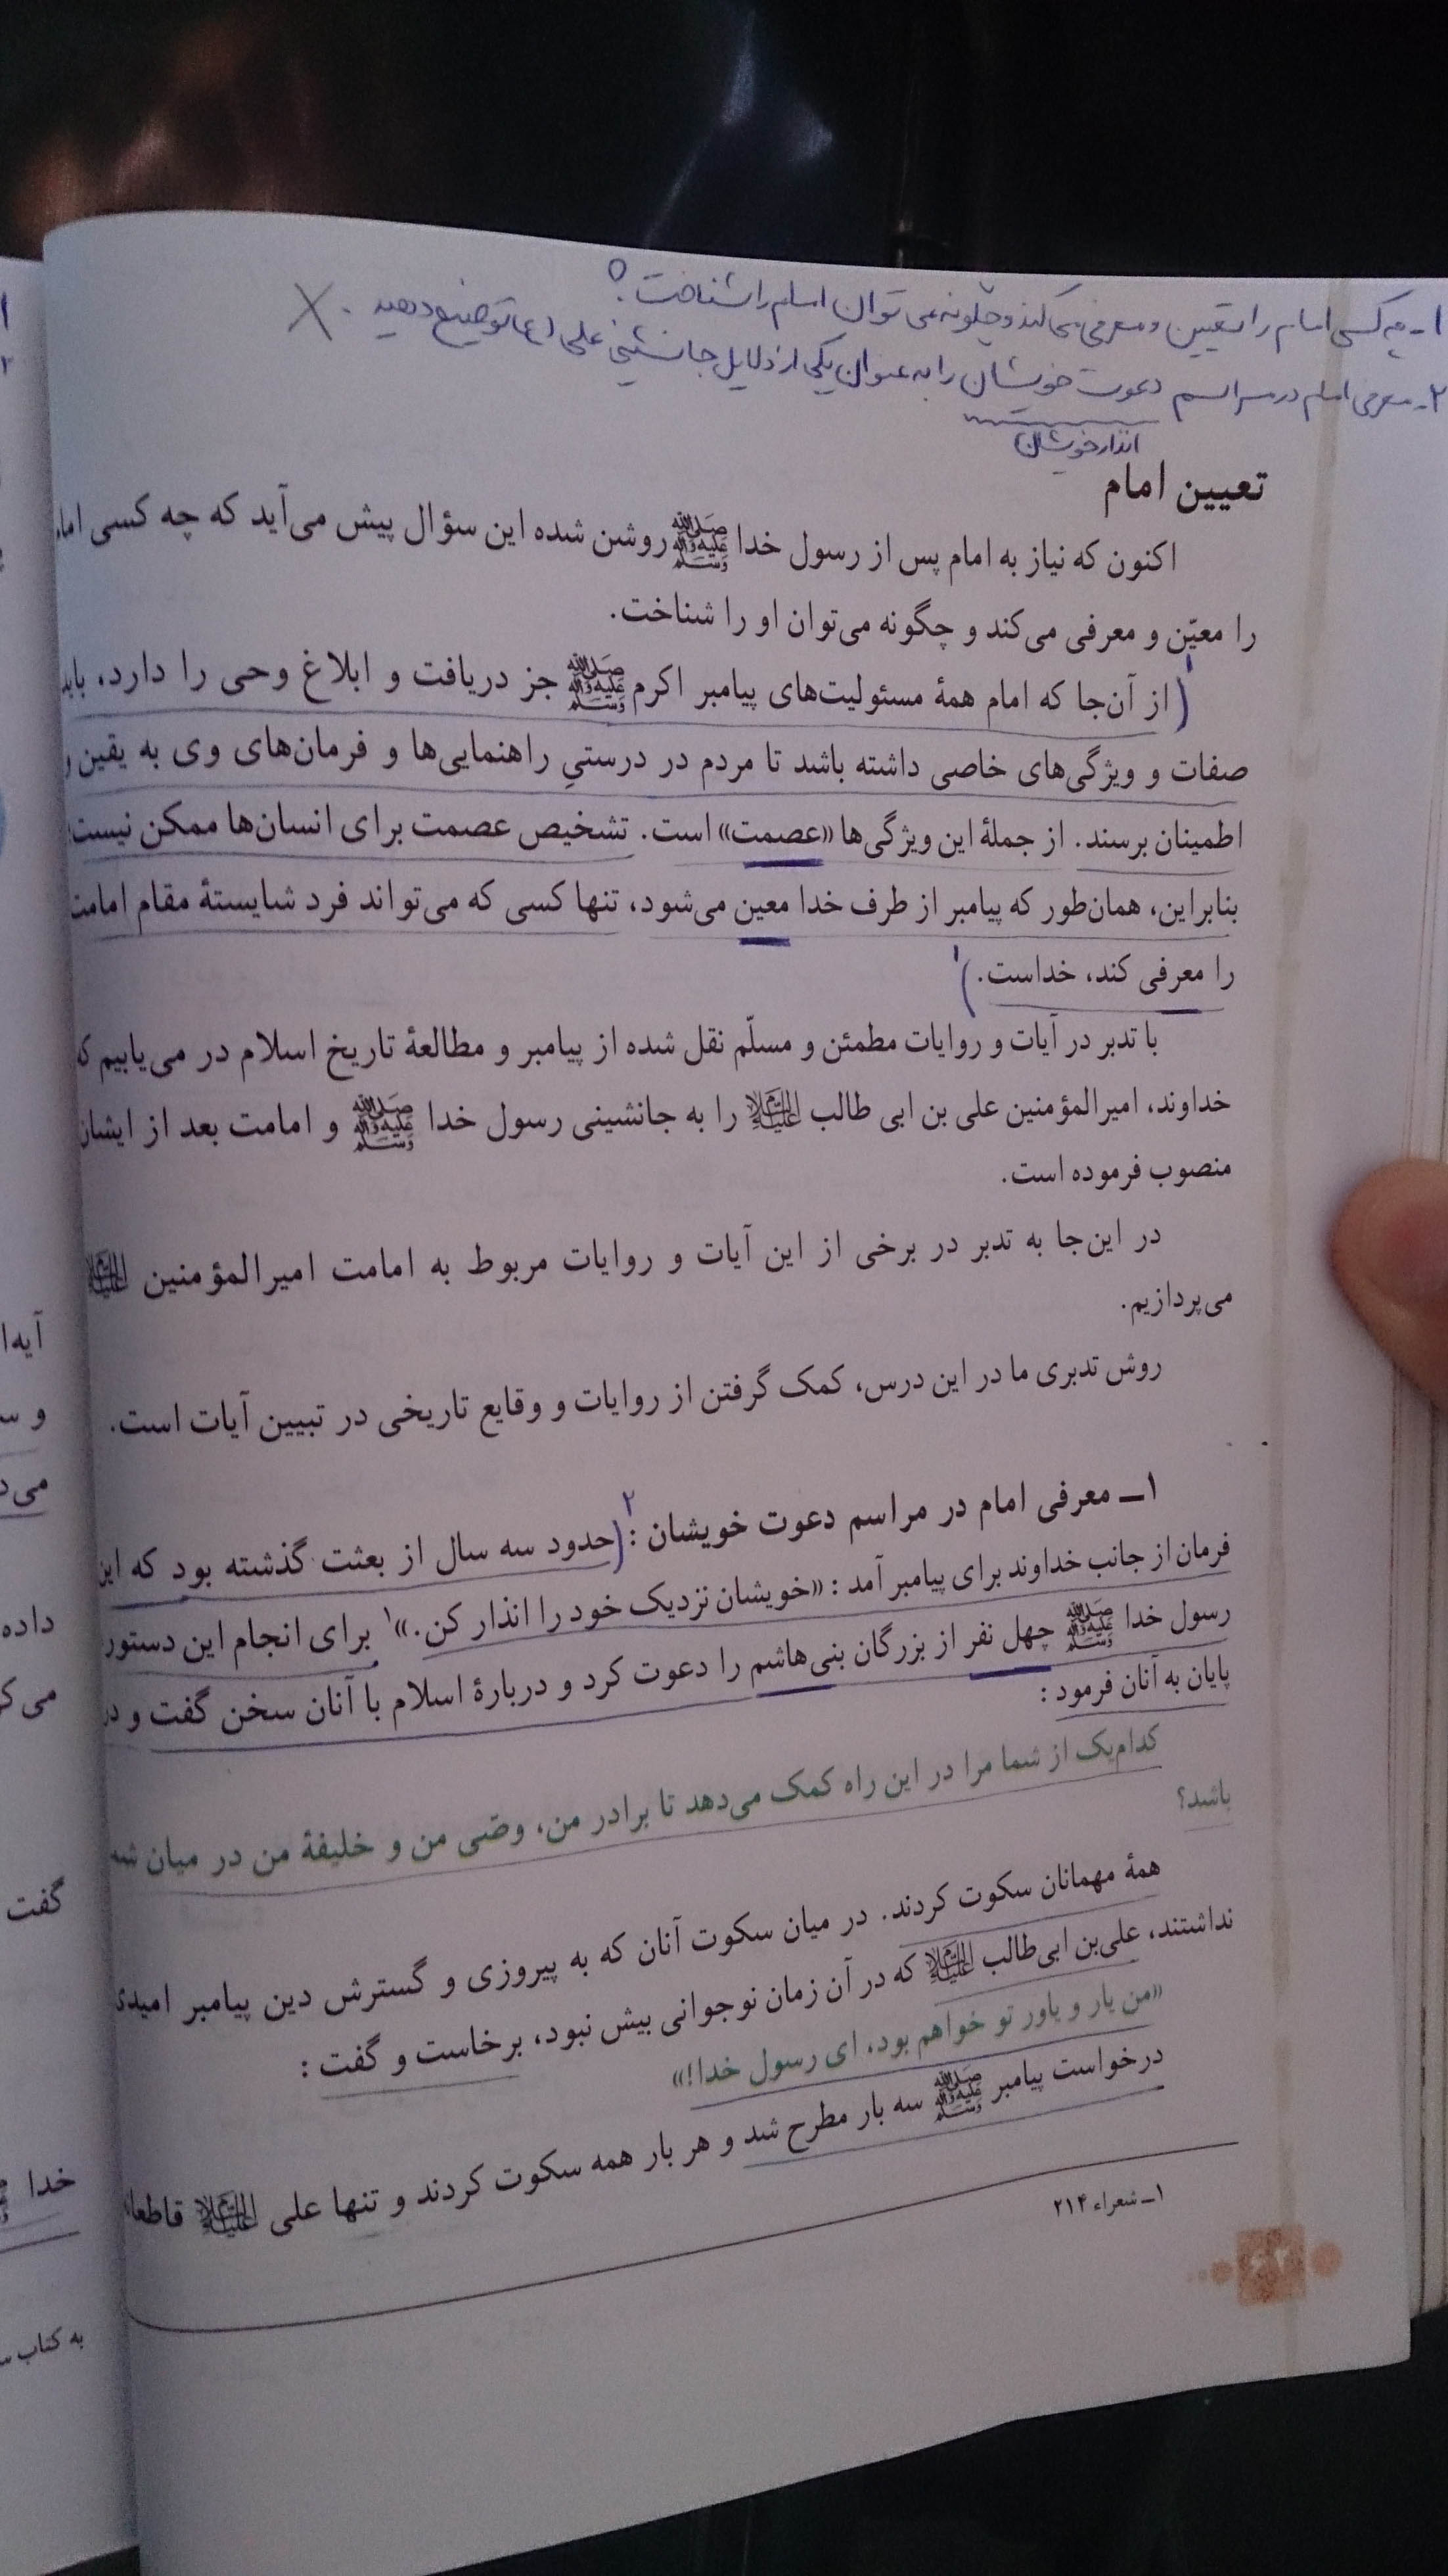 ۱- چه کسی امام را تعیین و معرفی می‌کند و چگونه می‌توان امام را شناخت؟
۲- معرفی امام در مراسم دعوت خویشان را به عنوان یکی از دلایل جانشینی علی (ع) توضیح دهید.
انذار خویشان
تعیین امام
اکنون که نیاز به امام پس از رسول خدا ﷺ روشن شده این سؤال پیش می‌آید که چه کسی امام
را معیّن و معرفی می‌کند و چگونه می‌توان او را شناخت.
۱
(از آن‌جا که امام همهٔ مسئولیت‌های پیامبر اکرم ﷺ جز دریافت و ابلاغ وحی را دارد، باید
صفات و ویژگی‌های خاصی داشته باشد تا مردم در درستیِ راهنمایی‌ها و فرمان‌های وی به یقین و
اطمینان برسند. از جملهٔ این ویژگی‌ها «عصمت» است. تشخیص عصمت برای انسان‌ها ممکن نیست؛
بنابراین، همان‌طور که پیامبر از طرف خدا معین می‌شود، تنها کسی که می‌تواند فرد شایستهٔ مقام امامت
را معرفی کند، خداست.) ۱
با تدبر در آیات و روایات مطمئن و مسلّم نقل شده از پیامبر و مطالعهٔ تاریخ اسلام در می‌یابیم که
خداوند، امیرالمؤمنین علی بن ابی طالب علیه‌السلام را به جانشینی رسول خدا ﷺ و امامت بعد از ایشان
منصوب فرموده است.
در این‌جا به تدبر در برخی از این آیات و روایات مربوط به امامت امیرالمؤمنین علیه‌السلام
می‌پردازیم.
روش تدبری ما در این درس، کمک گرفتن از روایات و وقایع تاریخی در تبیین آیات است.
۱ـ معرفی امام در مراسم دعوت خویشان : ۲ (حدود سه سال از بعثت گذشته بود که این
فرمان از جانب خداوند برای پیامبر آمد : «خویشان نزدیک خود را انذار کن.»۱ برای انجام این دستور
رسول خدا ﷺ چهل نفر از بزرگان بنی‌هاشم را دعوت کرد و دربارهٔ اسلام با آنان سخن گفت و در
پایان به آنان فرمود :
کدام‌یک از شما مرا در این راه کمک می‌دهد تا برادر من، وصّی من و خلیفهٔ من در میان شم
باشد؟
همهٔ مهمانان سکوت کردند. در میان سکوت آنان که به پیروزی و گسترش دین پیامبر امیدی
نداشتند، علی‌بن ابی‌طالب علیه‌السلام که در آن زمان نوجوانی بیش نبود، برخاست و گفت :
«من یار و یاور تو خواهم بود، ای رسول خدا!»
درخواست پیامبر ﷺ سه بار مطرح شد و هر بار همه سکوت کردند و تنها علی علیه‌السلام قاطعا
۱ـ شعراء ۲۱۴
۶۲
آیه‌ا
و س
می‌د
داده
می ک
گفت
خدا
به کتاب